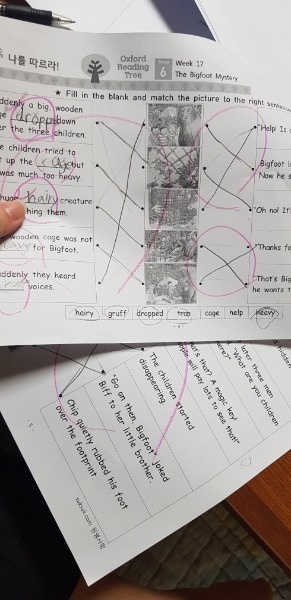 나를 따르라!
Oxford
Reading
Tree
Stage
6
Week 17
The Bigfoot Mystery
★ Fill in the blank and match the picture to the right senten
ddenly a big, wooden
ge dropped down
er the three children.
e children tried to
t up the cage but
was much too heavy.
hairy creature
hing them.
wooden cage was not
heavy for Bigfoot.
ddenly they heard
voices.
"Help! Is
Bigfoot
Now he s
"Oh no! It'
"Thanks fo
"That's Big
he wants t
hairy gruff dropped trap cage help heavy
- 4 -
later three men
"What are you children
here?"
at's that? A magic key!
ople will pay lots to see that"
The children started
disappearing.
"Go on then, Bigfoot," joked
Biff to her little brother.
Chip quietly rubbed his foot
over the footprint.
- 5 -